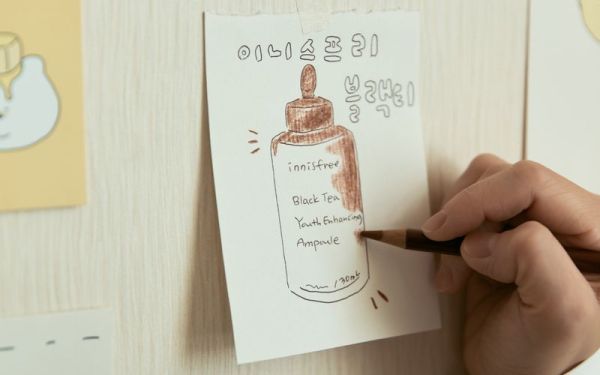 이니스프리
블랙티
innisfree
Black Tea
Youth Enhancing
Ampoule